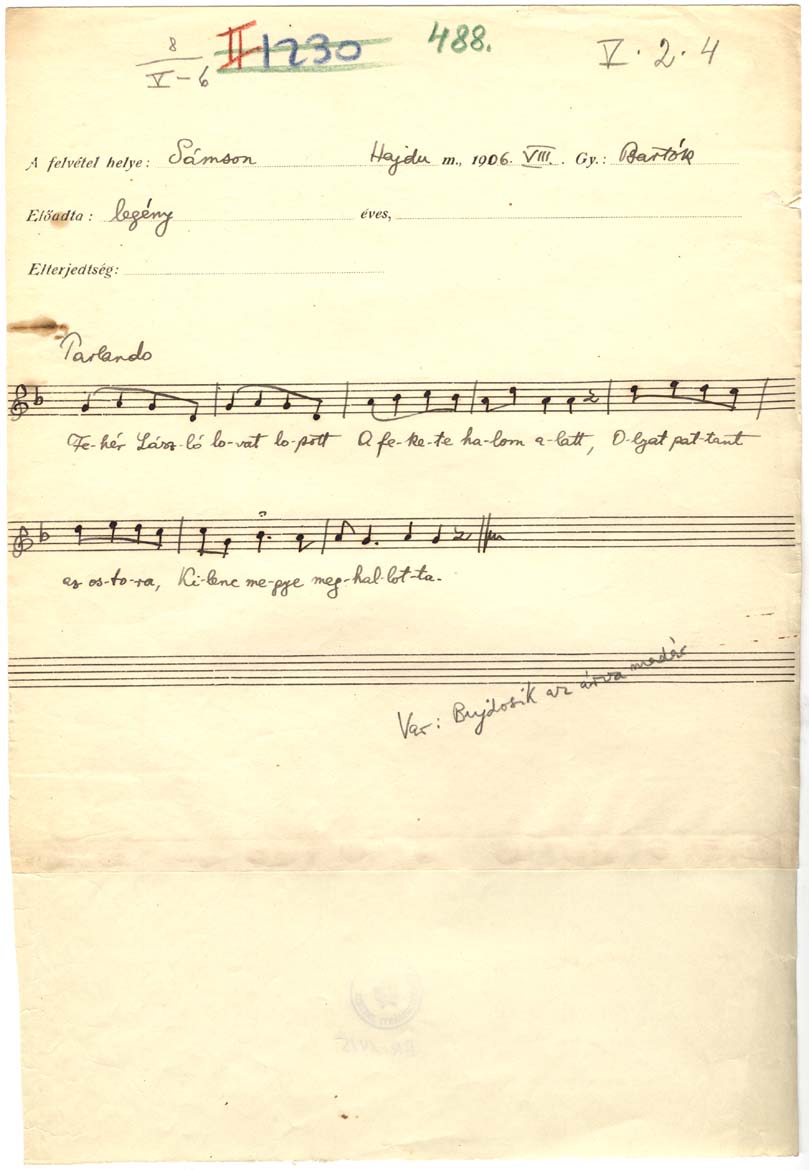 8
V-6
II 1230
488.
V. 2. 4
A felvétel helye: Sámson Hajdu m., 1906. VIII. Gy.: Bartók
Előadta: legény éves,
Elterjedtség:
Parlando
Fe-hér Lász-ló lo-vat lo-pott A fe-ke-te ha-lom a-latt, O-lyat pat-tant
az os-to-ra, Ki-lenc me-gye meg-hal-lot-ta.
Var: Bujdosik az árva madár